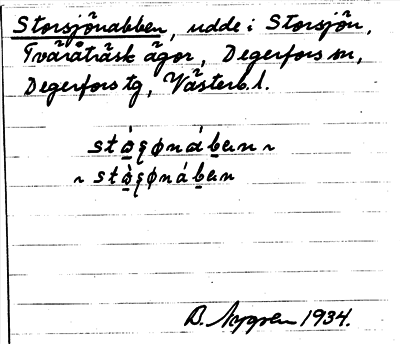 Storsjönabben, udde i Storsjön,
Tväråträsk ägor, Degerfors sn,
Degerfors tg, Västerb. l.
B. Nygren 1934.